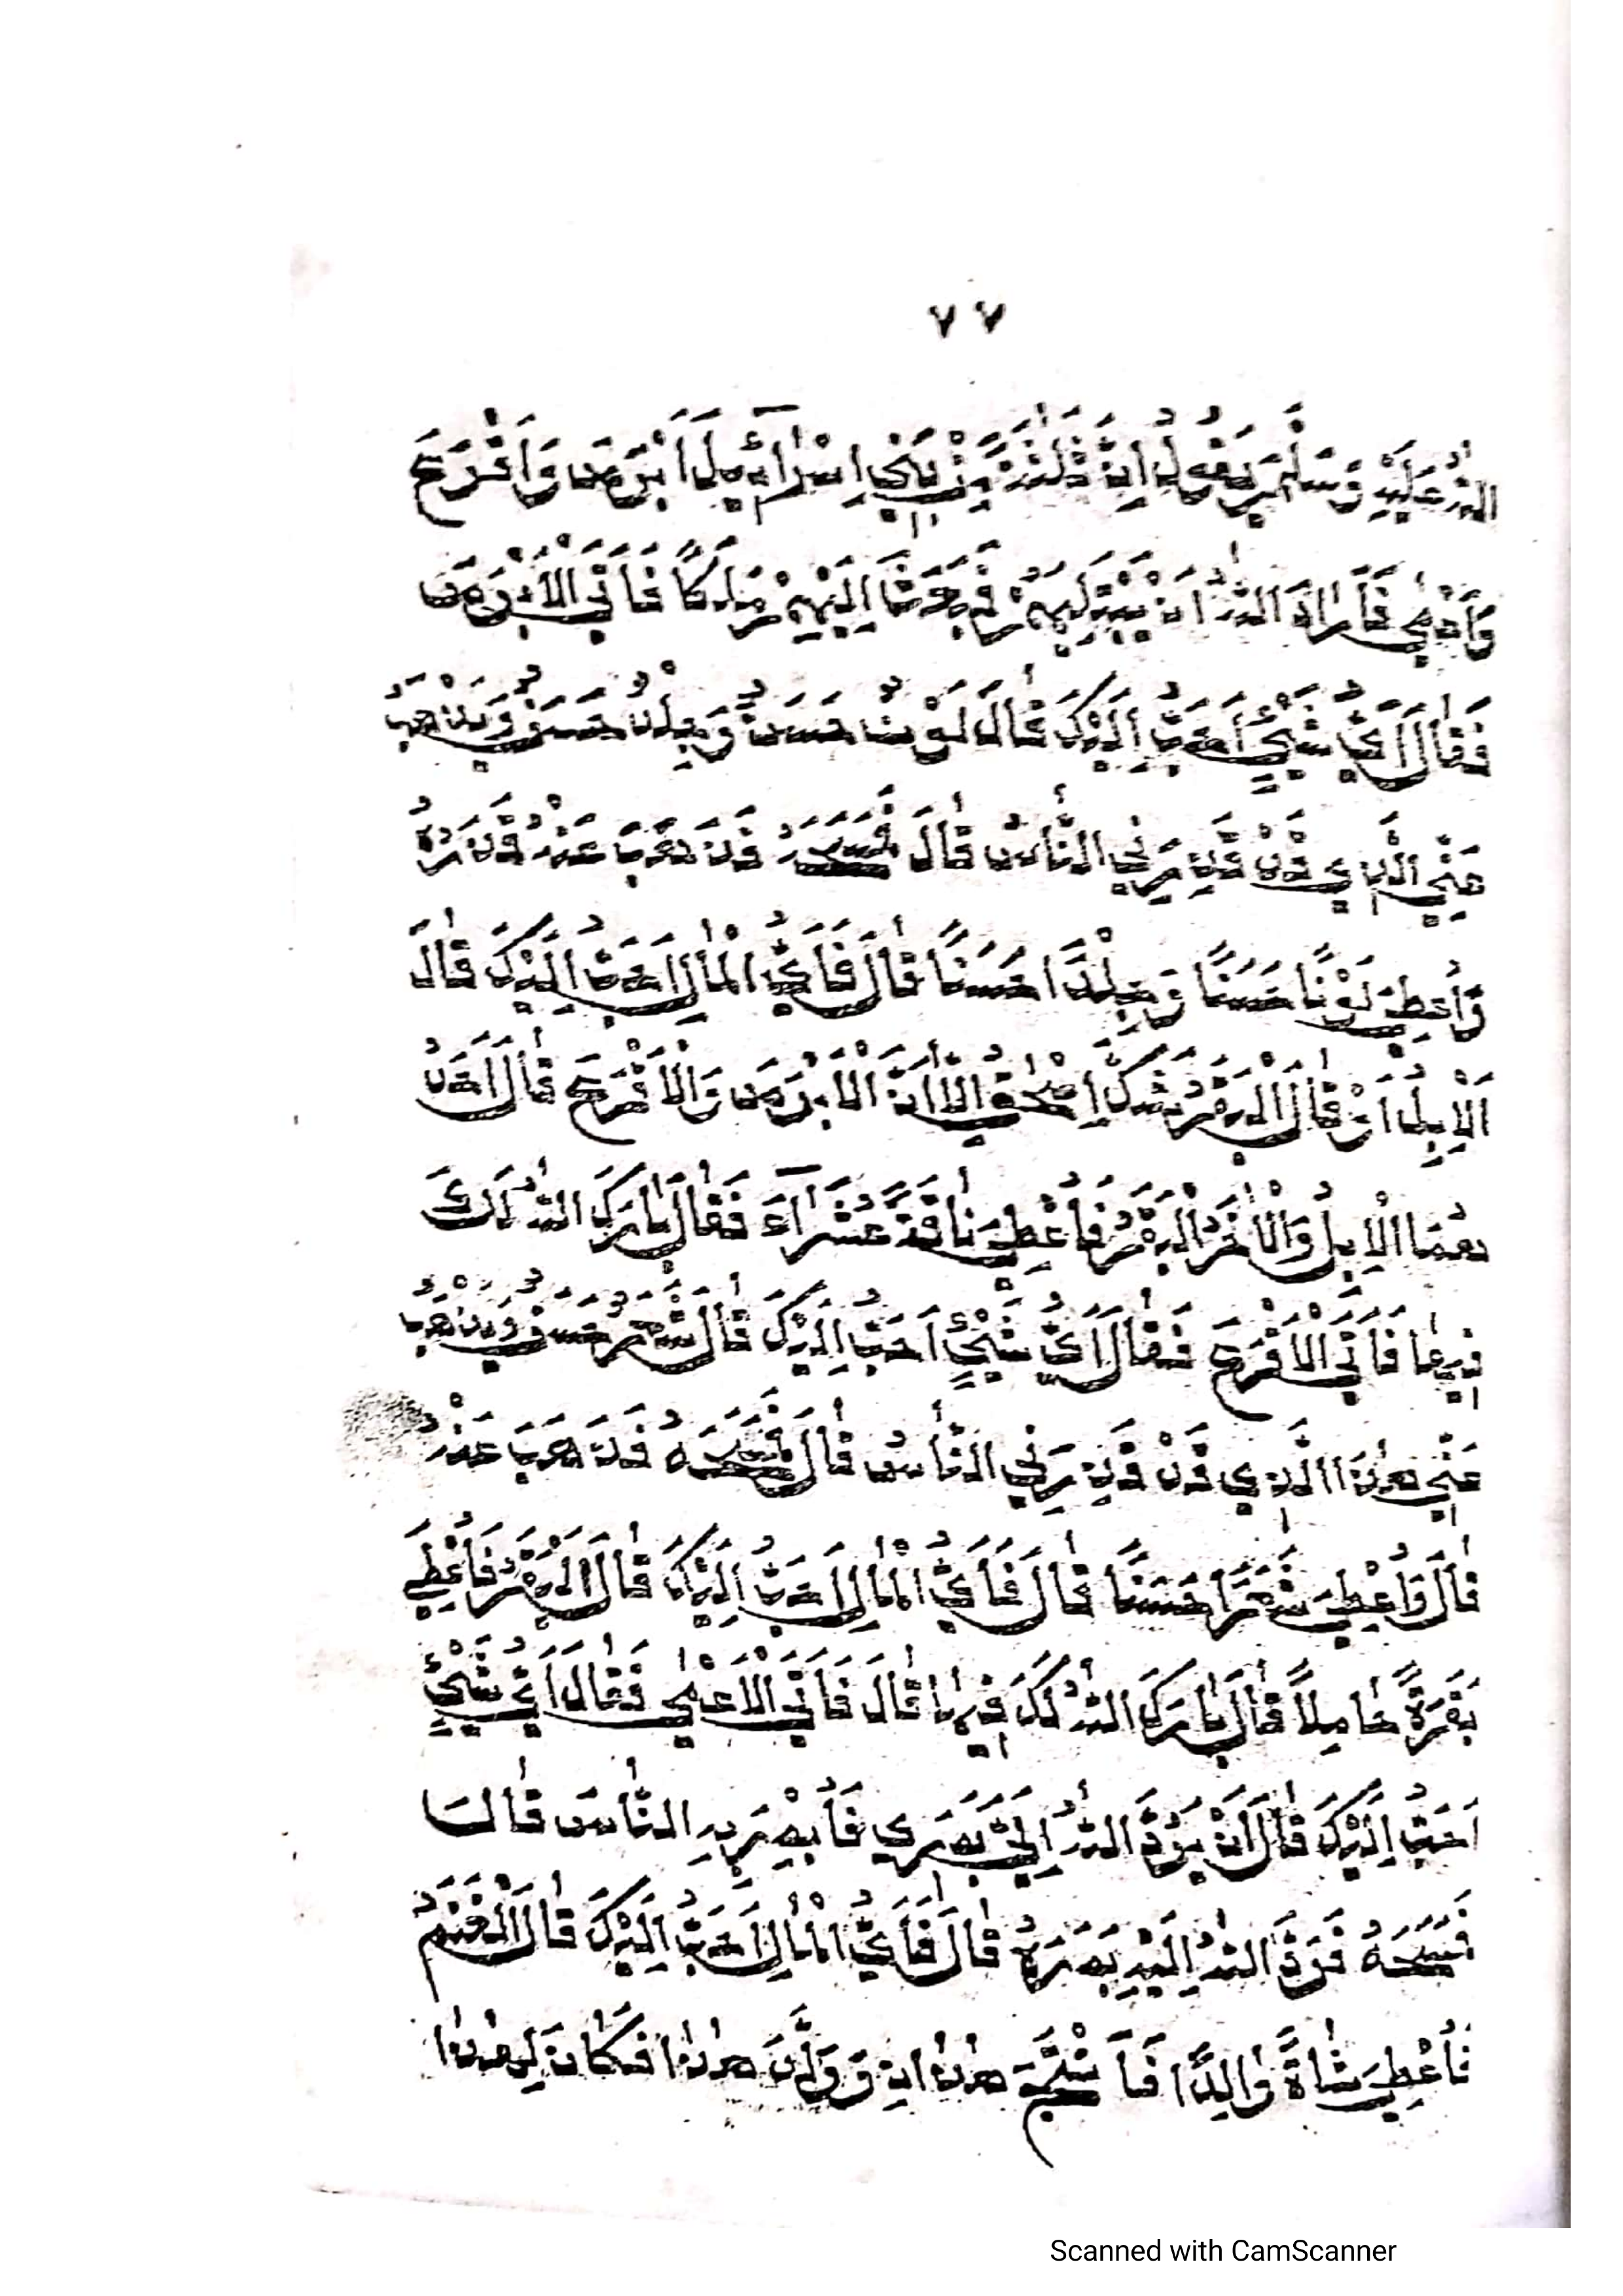 ٧٧
اللهُ عَلَيْهِ وَسَلَّمَ يَقُولُ اِنَّ ثَلٰثَةً مِّنْ بَنِيْ اِسْرَآئِيلَ اَبْرَصَ وَاَقْرَعَ
وَاَعْمٰى فَاَرَادَ اللهُ اَنْ يَّبْتَلِيَهُمْ فَبَعَثَ اِلَيْهِمْ مَلَكًا فَاَتَى الْاَبْرَصَ
فَقَالَ اَيُّ شَيْئٍ اَحَبُّ اِلَيْكَ قَالَ لَوْنٌ حَسَنٌ وَجِلْدٌ حَسَنٌ وَيَذْهَبُ
عَنِّي الَّذِي قَدْ قَذِرَنِي النَّاسُ قَالَ فَمَسَحَهُ فَذَهَبَ عَنْهُ قَذَرُهُ
وَاُعْطِيَ لَوْنًا حَسَنًا وَجِلْدًا حَسَنًا قَالَ فَاَيُّ الْمَالِ اَحَبُّ اِلَيْكَ قَالَ
اَلْاِبِلُ اَوْ قَالَ الْبَقَرُ شَكَّ اِسْحٰقُ اِلَّا اَنَّ الْاَبْرَصَ وَالْاَقْرَعَ قَالَ اَحَدُ
هُمَا الْاِبِلُ وَالْاٰخَرُ الْبَقَرُ فَاُعْطِيَ نَاقَةً عُشَرَآءَ فَقَالَ بَارَكَ اللهُ لَكَ
فِيهَا فَاَتَى الْاَقْرَعَ فَقَالَ اَيُّ شَيْئٍ اَحَبُّ اِلَيْكَ قَالَ شَعْرٌ حَسَنٌ وَيَذْهَبُ
عَنِّي هٰذَا الَّذِي قَدْ قَذِرَنِي النَّاسُ قَالَ فَمَسَحَهُ فَذَهَبَ عَنْهُ
قَالَ وَاُعْطِيَ شَعَرًا حَسَنًا قَالَ فَاَيُّ الْمَالِ اَحَبُّ اِلَيْكَ قَالَ الْبَقَرُ فَاُعْطِيَ
بَقَرَةً حَامِلًا قَالَ بَارَكَ اللهُ لَكَ فِيهَا قَالَ فَاَتَى الْاَعْمٰى فَقَالَ اَيُّ شَيْئٍ
اَحَبُّ اِلَيْكَ قَالَ اَنْ يَرُدَّ اللهُ اِلَيَّ بَصَرِي فَاُبْصِرَ بِهِ النَّاسَ قَالَ
فَمَسَحَهُ فَرَدَّ اللهُ اِلَيْهِ بَصَرَهُ قَالَ فَاَيُّ الْمَالِ اَحَبُّ اِلَيْكَ قَالَ الْغَنَمُ
فَاُعْطِيَ شَاةً وَالِدًا فَاَنْتَجَ هٰذَانِ وَوَلَّدَ هٰذَا فَكَانَ لِهٰذَا
Scanned with CamScanner